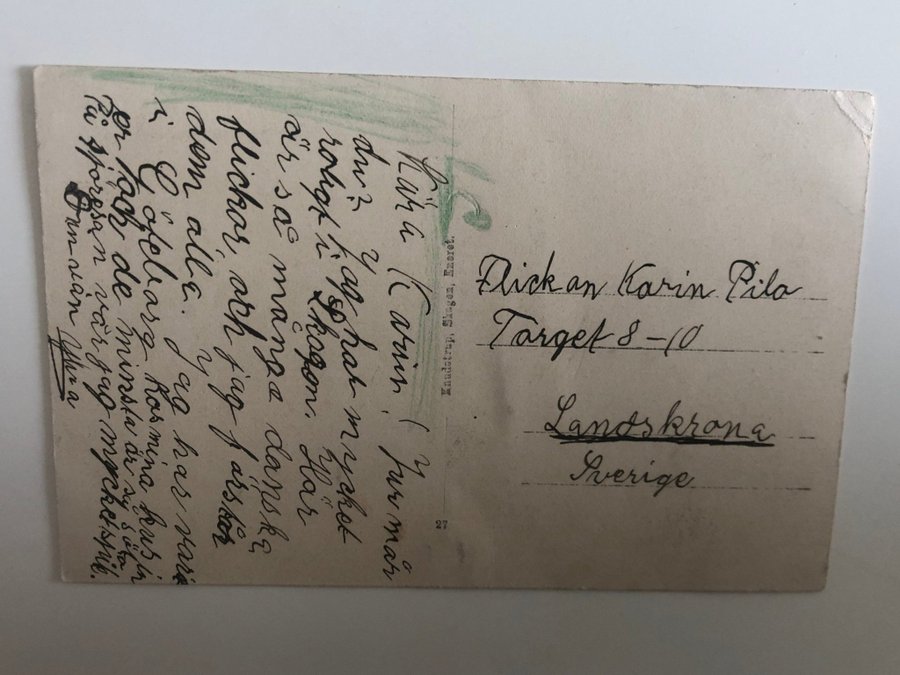 Kära Karin! Hur mår
du? Jag har mycket
roligt i Skagen. Här
är så många danska
flickor, och jag förstår
dem alla. Jag har varit
i Göteborg hos mina kusin
er och de minsta är så söta
På sjöresan var jag mycket
Din vän Ylva
Knudstrup, Skagen, Eneret.
27
Flickan Karin Pilo
Torget 8-10
Landskrona
Sverige